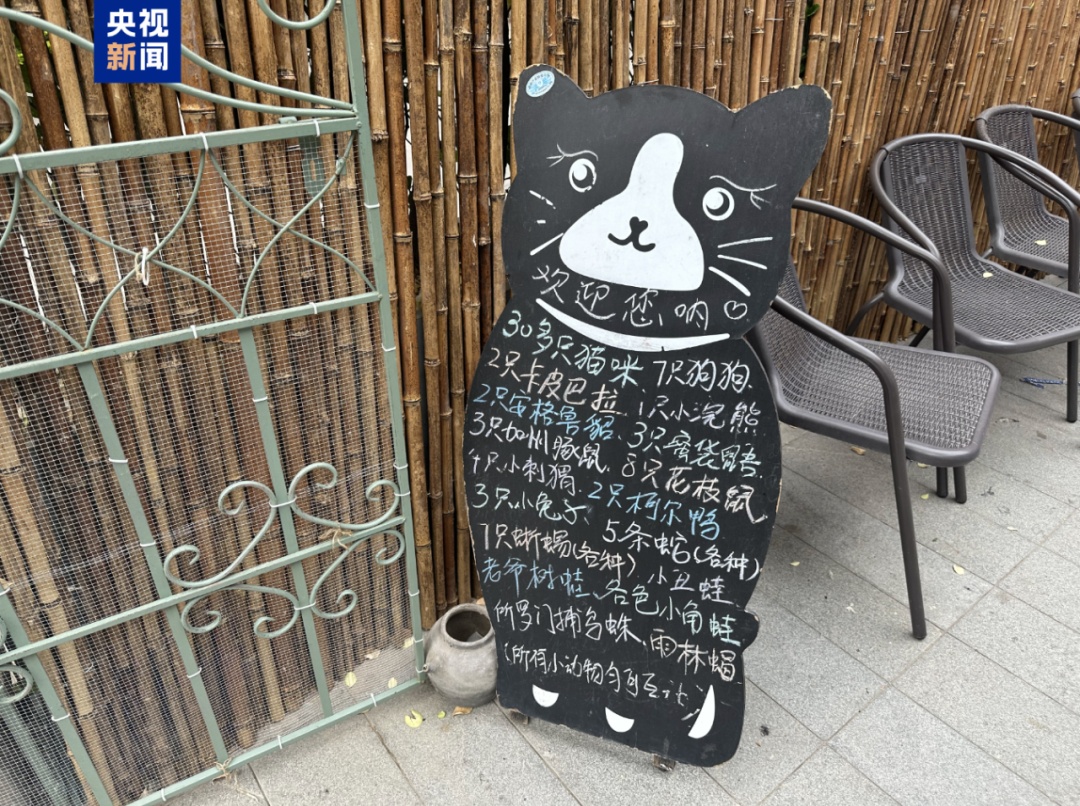 央视
新闻
欢迎您呐
30多只猫咪 7只狗狗、
2只卡皮巴拉、1只小浣熊
2只安格鲁貂、3只蜜袋鼯
3只加州豚鼠、8只花枝鼠、
4只小刺猬、
3只小兔子、2只柯尔鸭
7只蜥蜴(各种)、5条蛇(各种)
老爷树蛙、小丑蛙
各色小角蛙
所罗门捕鸟蛛、雨林蝎
(所有小动物均可互动)